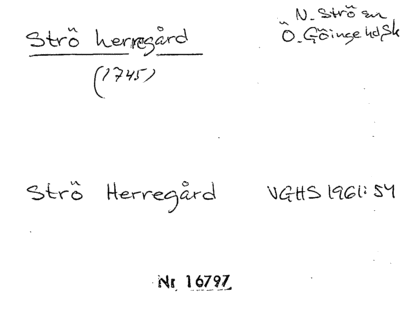 Strö herregård
(1745)
N. Strö sn
Ö. Göinge hd, Sk
Strö Herregård VGHS 1961: 54
Nr 16797